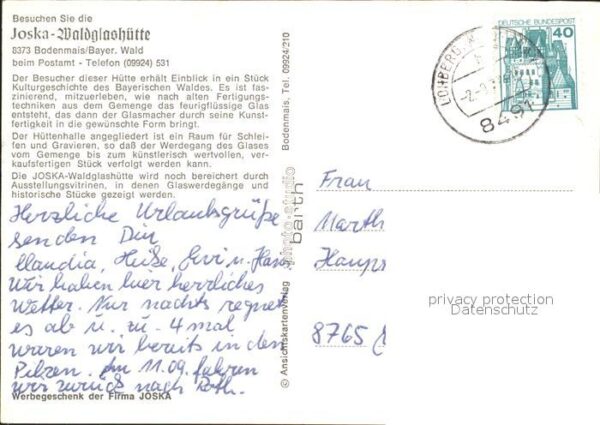 Besuchen Sie die
Joska-Waldglashütte
8373 Bodenmais/Bayer. Wald
beim Postamt - Telefon (09924) 531
Der Besucher dieser Hütte erhält Einblick in ein Stück
Kulturgeschichte des Bayerischen Waldes. Es ist fas-
zinierend, mitzuerleben, wie nach alten Fertigungs-
techniken aus dem Gemenge das feurigflüssige Glas
entsteht, das dann der Glasmacher durch seine Kunst-
fertigkeit in die gewünschte Form bringt.
Der Hüttenhalle angegliedert ist ein Raum für Schlei-
fen und Gravieren, so daß der Werdegang des Glases
vom Gemenge bis zum künstlerisch wertvollen, ver-
kaufsfertigen Stück verfolgt werden kann.
Die JOSKA-Waldglashütte wird noch bereichert durch
Ausstellungsvitrinen, in denen Glaswerdegänge und
historische Stücke gezeigt werden.
Herzliche Urlaubsgrüße
senden Dir
Claudia, Heike, Evi u. Hans
Wir haben hier herrliches
Wetter. Nur nachts regnet
es ab u. zu. 4 mal
waren wir bereits in den
Pilzen. Am 11.09. fahren
wir zurück nach Roth.
Werbegeschenk der Firma JOSKA
© Ansichtskartenverlag photo-studio barth Bodenmais, Tel. 09924/210
DEUTSCHE BUNDESPOST
40
LOHBERG
8491
Frau
Marth
Haups
8765
privacy protection
Datenschutz